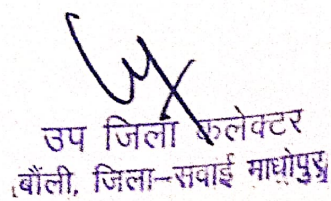 उप जिला कलेक्टर
बौंली, जिला-सवाई माधोपुर